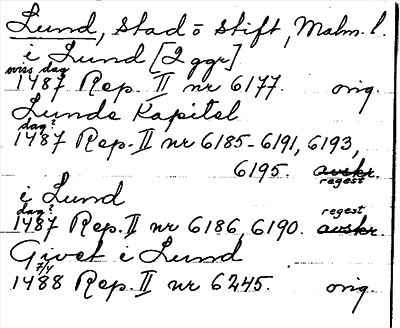 Lund, stad o stift, Malm. l.
i Lund [2 ggr]
viss dag
1487 Rep. II nr 6177. orig.
Lunds Kapitel
dag?
1487 Rep. II nr 6185-6191, 6193,
6195. avskr.
regest
i Lund
dag? regest
1487 Rep. II nr 6186, 6190. avskr.
Givet i Lund
7/4
1488 Rep. II nr 6245. orig.